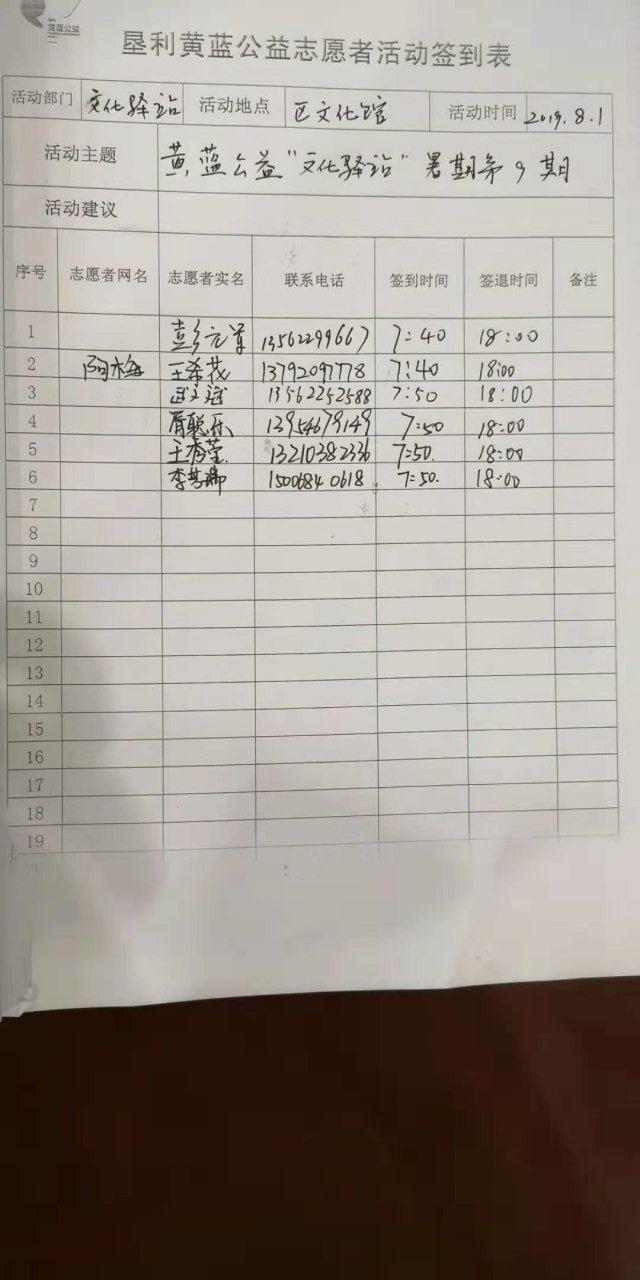 黄蓝公益
垦利黄蓝公益志愿者活动签到表
活动部门 文化驿站 活动地点 区文化馆 活动时间 2019.8.1
活动主题 黄蓝公益“文化驿站”暑期第9期
活动建议
序号 志愿者网名 志愿者实名 联系电话 签到时间 签退时间 备注
1 彭元军 13562299667 7:40 18:00
2 阿梅 王希茂 13792091778 7:40 18:00
3 13562252588 7:50 18:00
4 胥聪乐 13954679149 7:50 18:00
5 王秀莹 13210382336 7:50. 18:00
6 15006840618 7:50. 18:00
7
8
9
10
11
12
13
14
15
16
17
18
19